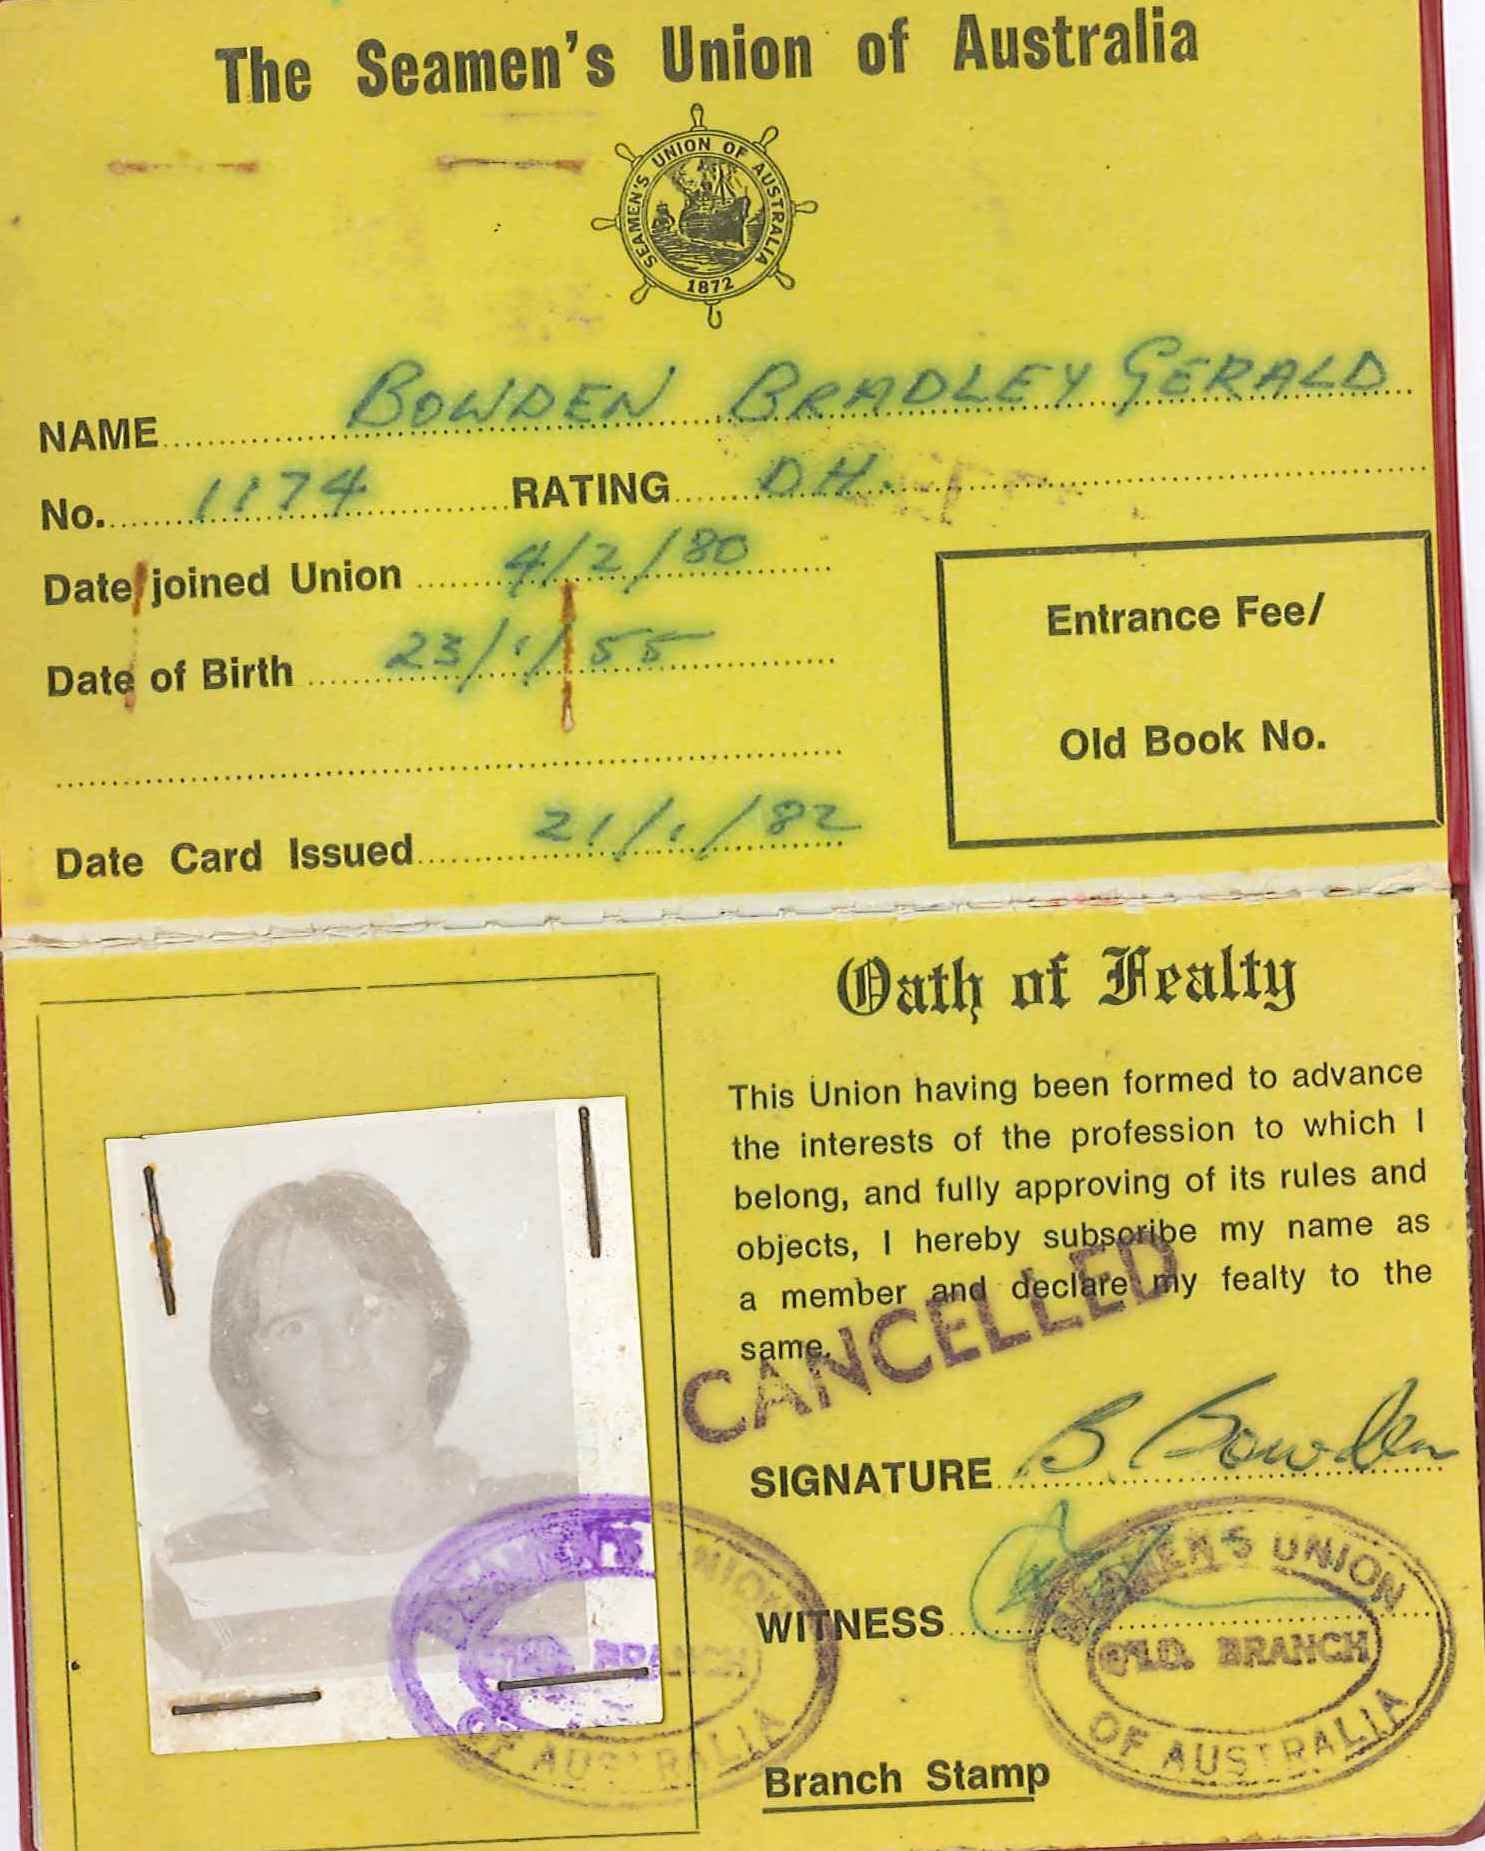 The Seamen's Union of Australia
SEAMEN'S UNION OF AUSTRALIA
1872
NAME BOWDEN BRADLEY GERALD
No. 1174 RATING D.H.
Date joined Union 4/2/80
Date of Birth 23/1/55
Entrance Fee/
Old Book No.
Date Card Issued 21/1/82
Oath of Fealty
This Union having been formed to advance
the interests of the profession to which I
belong, and fully approving of its rules and
objects, I hereby subscribe my name as
a member and declare my fealty to the
same.
CANCELLED
SIGNATURE B. Bowden
WITNESS
SEAMEN'S UNION
QLD. BRANCH
OF AUSTRALIA
SEAMEN'S UNION
BRANCH
OF AUSTRALIA
Branch Stamp